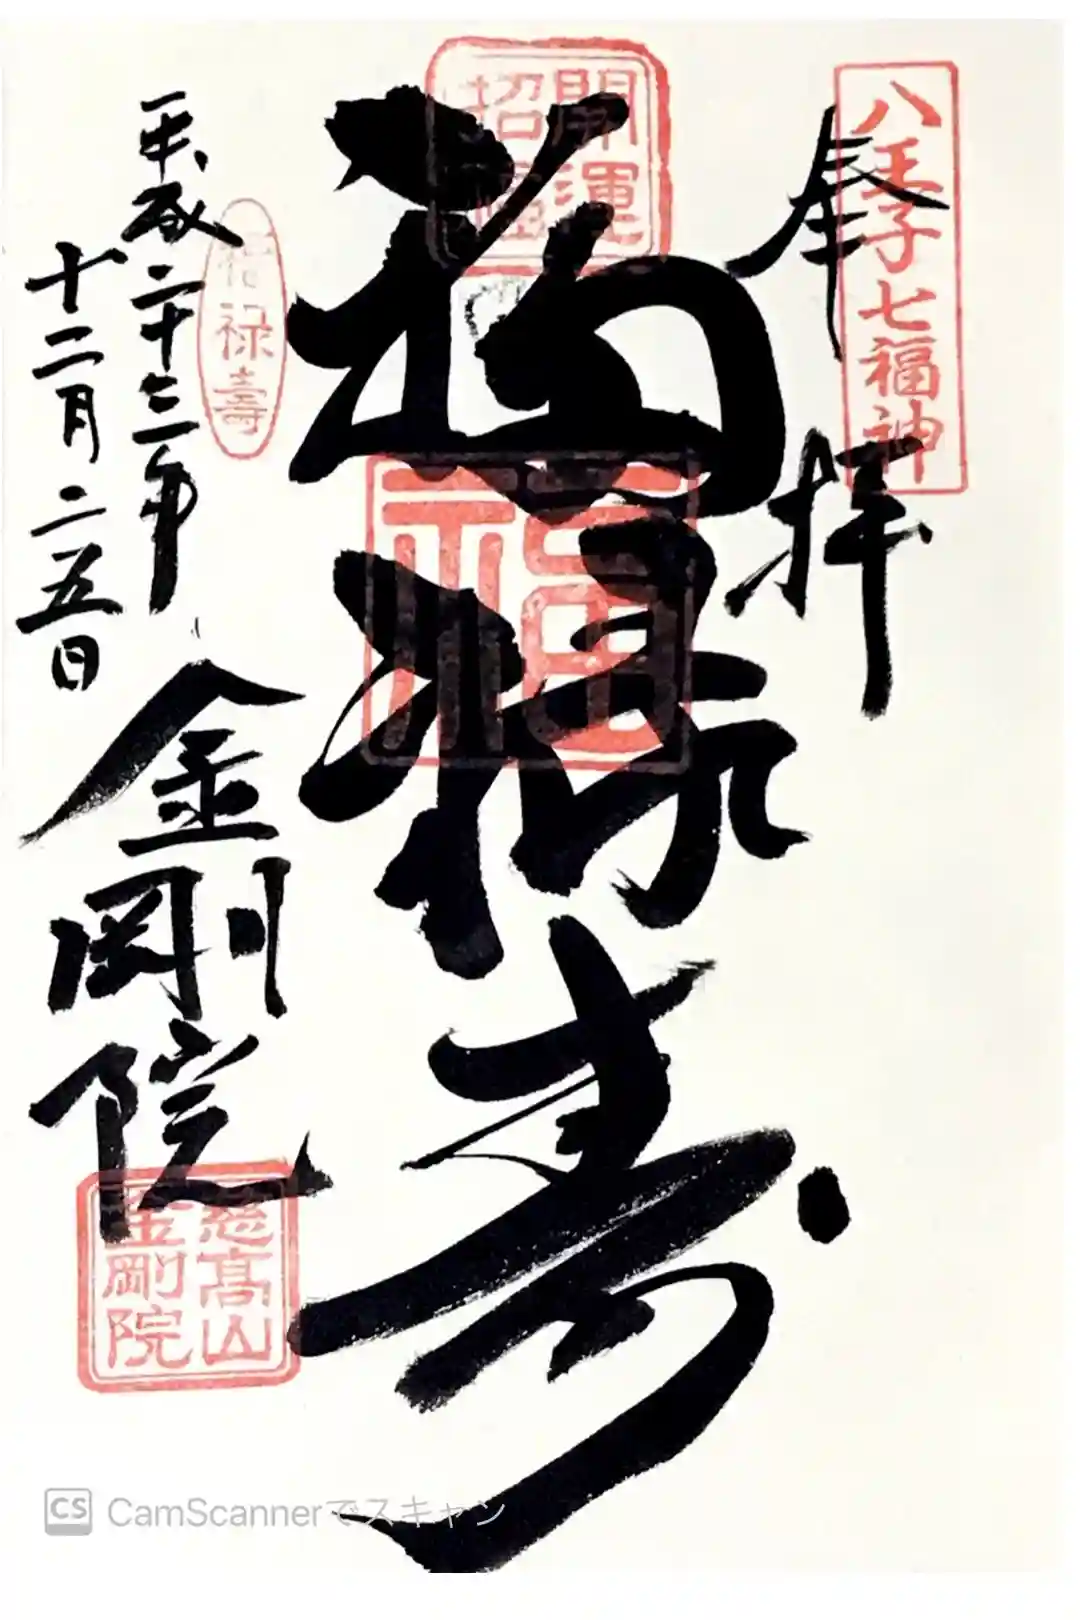 八王子七福神
奉拝
開運
招福
福禄寿
福
福禄壽
平成二十三年
十二月二五日
金剛院
慈高山
金剛院
CS CamScannerでスキャン